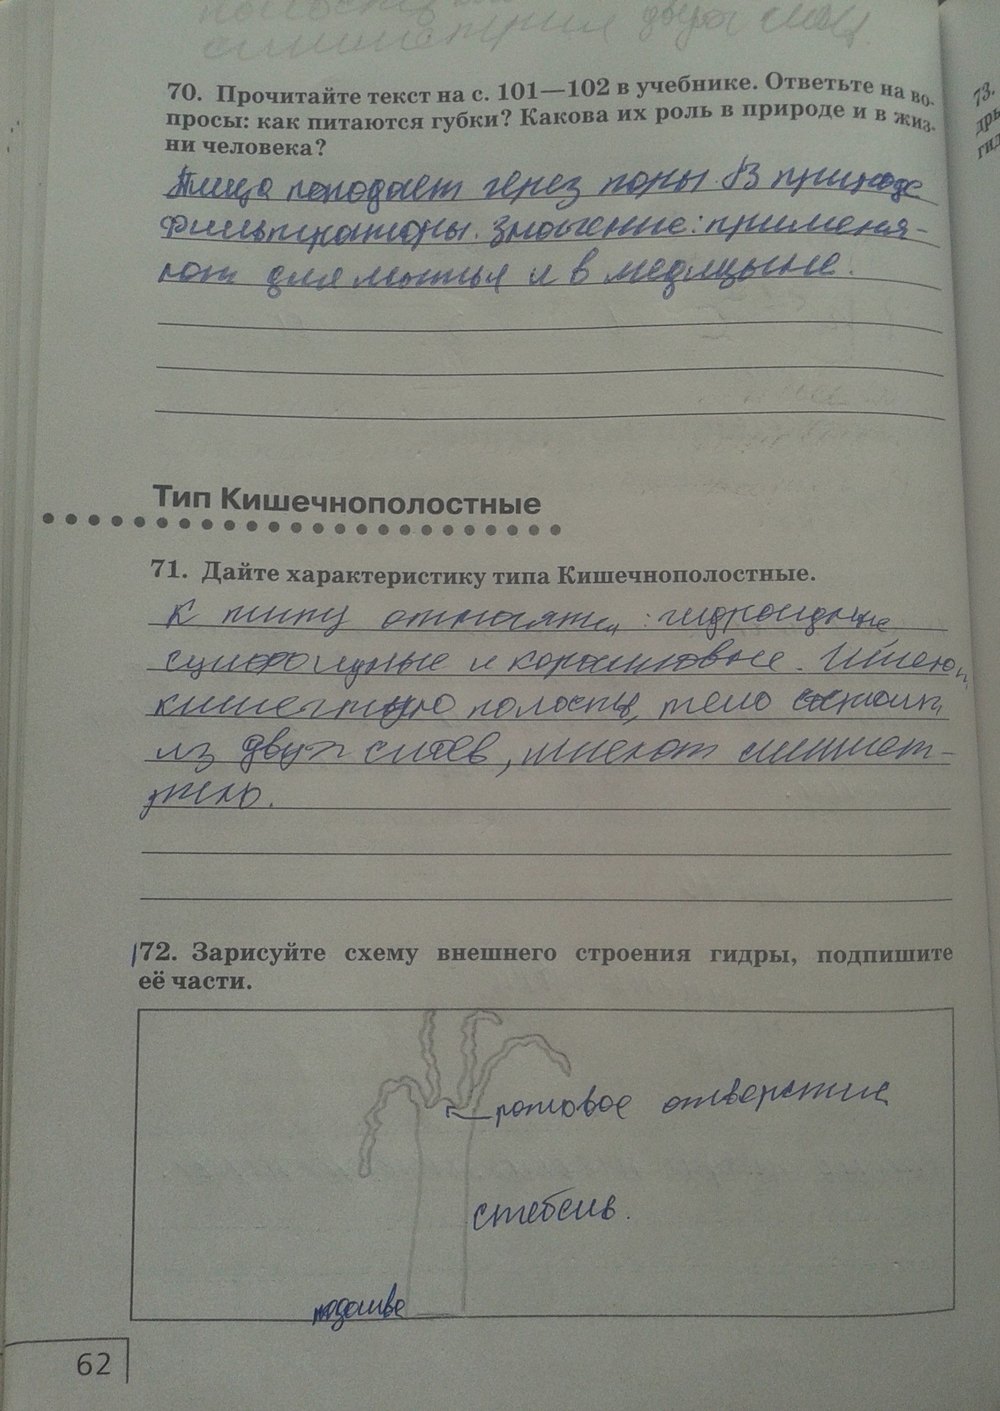 двух слоёв
симметрия
70. Прочитайте текст на с. 101—102 в учебнике. Ответьте на во-
просы: как питаются губки? Какова их роль в природе и в жиз-
ни человека?
Пища поподает через поры. В природе
Фильтраторы. Значение: применя-
ют для мытья и в медицыне.
Тип Кишечнополостные
71. Дайте характеристику типа Кишечнополостные.
К типу относятся: гидроидные
сцифоидные и коралловые. Имеют
кишечную полость, тело состоит
из двух слоев, имеют симмет-
рию.
72. Зарисуйте схему внешнего строения гидры, подпишите
её части.
ротовое отверстие
стебель.
подошва
62
73.
дры
гид